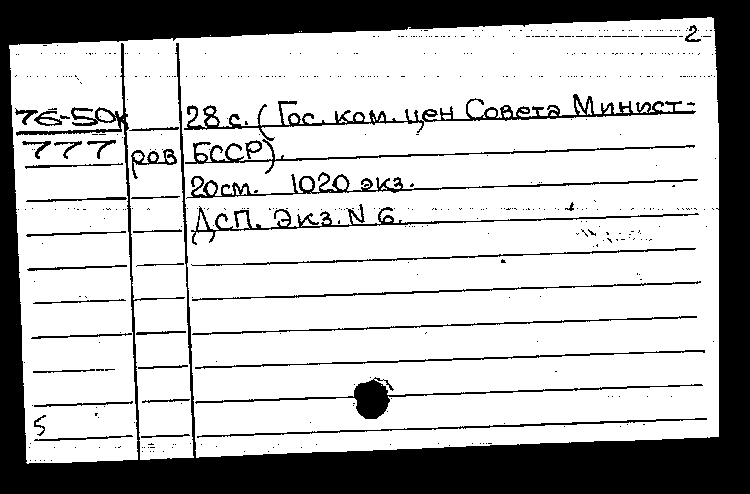 2
76-50к 28 с. (Гос. ком. цен Совета Минист-
777 ров БССР).
20 см. 1020 экз.
ДСП. Экз. N 6.
5